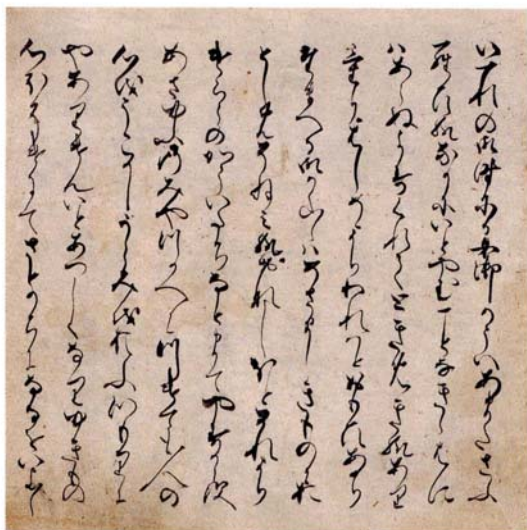 いつれの御時にか女御かういあまたさふ
らひ給なかにいとやむことなきゝはに
はあらぬかすくれてときめき給あり
けりはしめよりわれはとおもひあかり
たまへる御かた〳〵はめさましきものにお
としめそねみ給おなしほとそれより
けらうのかういたちなとましてやすからす
あさゆふのみやつかへにつけても人の
心をうこかしうらみをおふつもりに
やありけんいとあつしくなりゆきもの
心ほそけにてさとかちなるをいよ〳〵